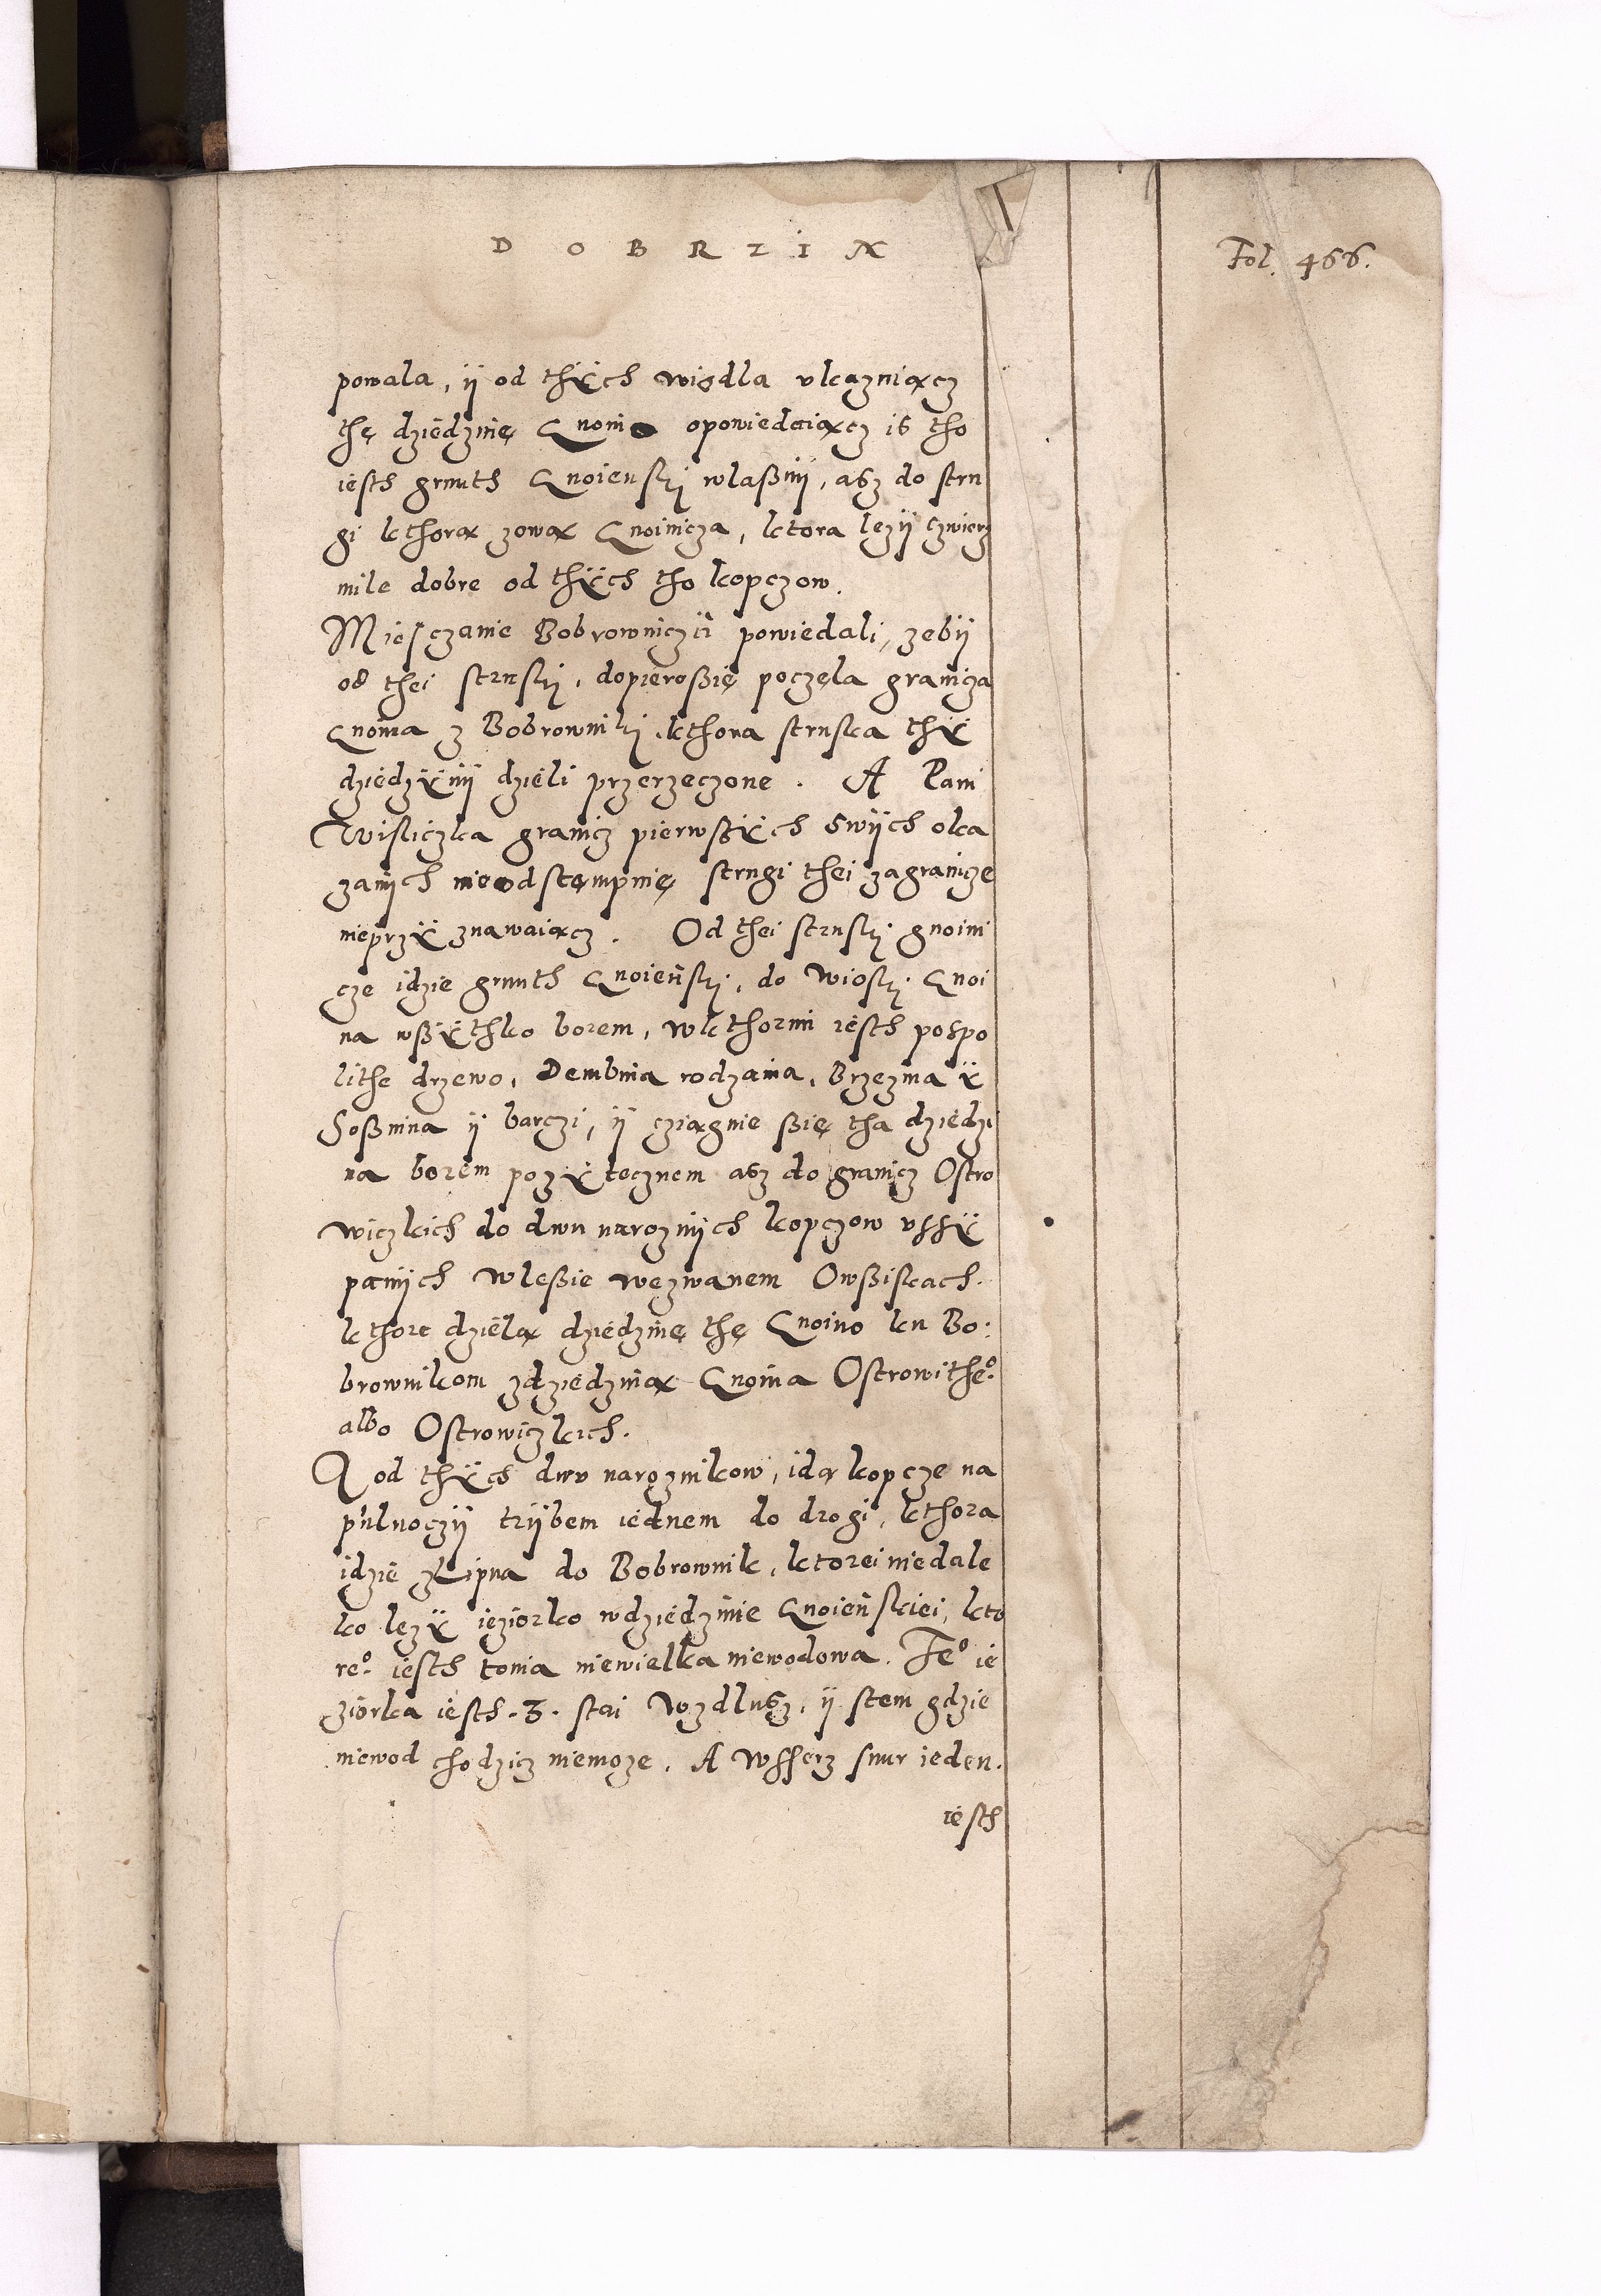 D O B R Z I N
Fol. 466.
powala, ÿ od thÿch wiodla vkazuiącz
thę dziedzinę Gnoino opowiedaiącz is tho
iesth grunth Gnoienski wlaßnÿ, asz do stru
gi kthorą zową Gnoinicza, ktora lezÿ czwierz
mile dobre od thÿch tho kopczow.
Miesczanie Bobrowniczÿ powiedali, zebÿ
od thei struski, dopieroßię poczęla granicza
Gnoina z Bobrowniki, kthora struska thÿ
dziedzÿnÿ dzieli przerzeczone. A Pani
Wisliczka granicz pierwßÿch swÿch oka
zanÿch nieodstempuię strugi thei zagranicze
nieprzÿznawaiącz. Od thei struski gnoini
cze idzie grunth Gnoieński, do wioski Gnoi
na wßÿthko borem, wkthorim iesth pospo
lithe drzewo, Dembina rodzaina, Brzezina ÿ
Soßnina ÿ barczi, ÿ cziągnie ßię tha dziedzi
na borem pozÿtecznem asz do granicz Ostro
wiczkich do dwu naroznÿch kopczow vssÿ
panÿch wleßie wezwanem Owßiskach.
kthore dzielą dziedzinę thę Gnoino ku Bo:
brownikom zdziedziną Gnoina Ostrowitheº
albo Ostrowiczkich.
A od thÿch dwu naroznikow, idą kopcze na
pulnoczÿ trÿbem iednem do drogi, kthora
idzie zLipna do Bobrownik, ktorei niedale
ko lezÿ ieziorko wdziedzinie Gnoieńskiei, kto
reº iesth tonia niewielka niewodowa. Teº ie
ziorka iesth .3. stai wzdlusz, ÿ stem gdzie
niewod chodzicz niemoze. A wsserz snur ieden.
iesth